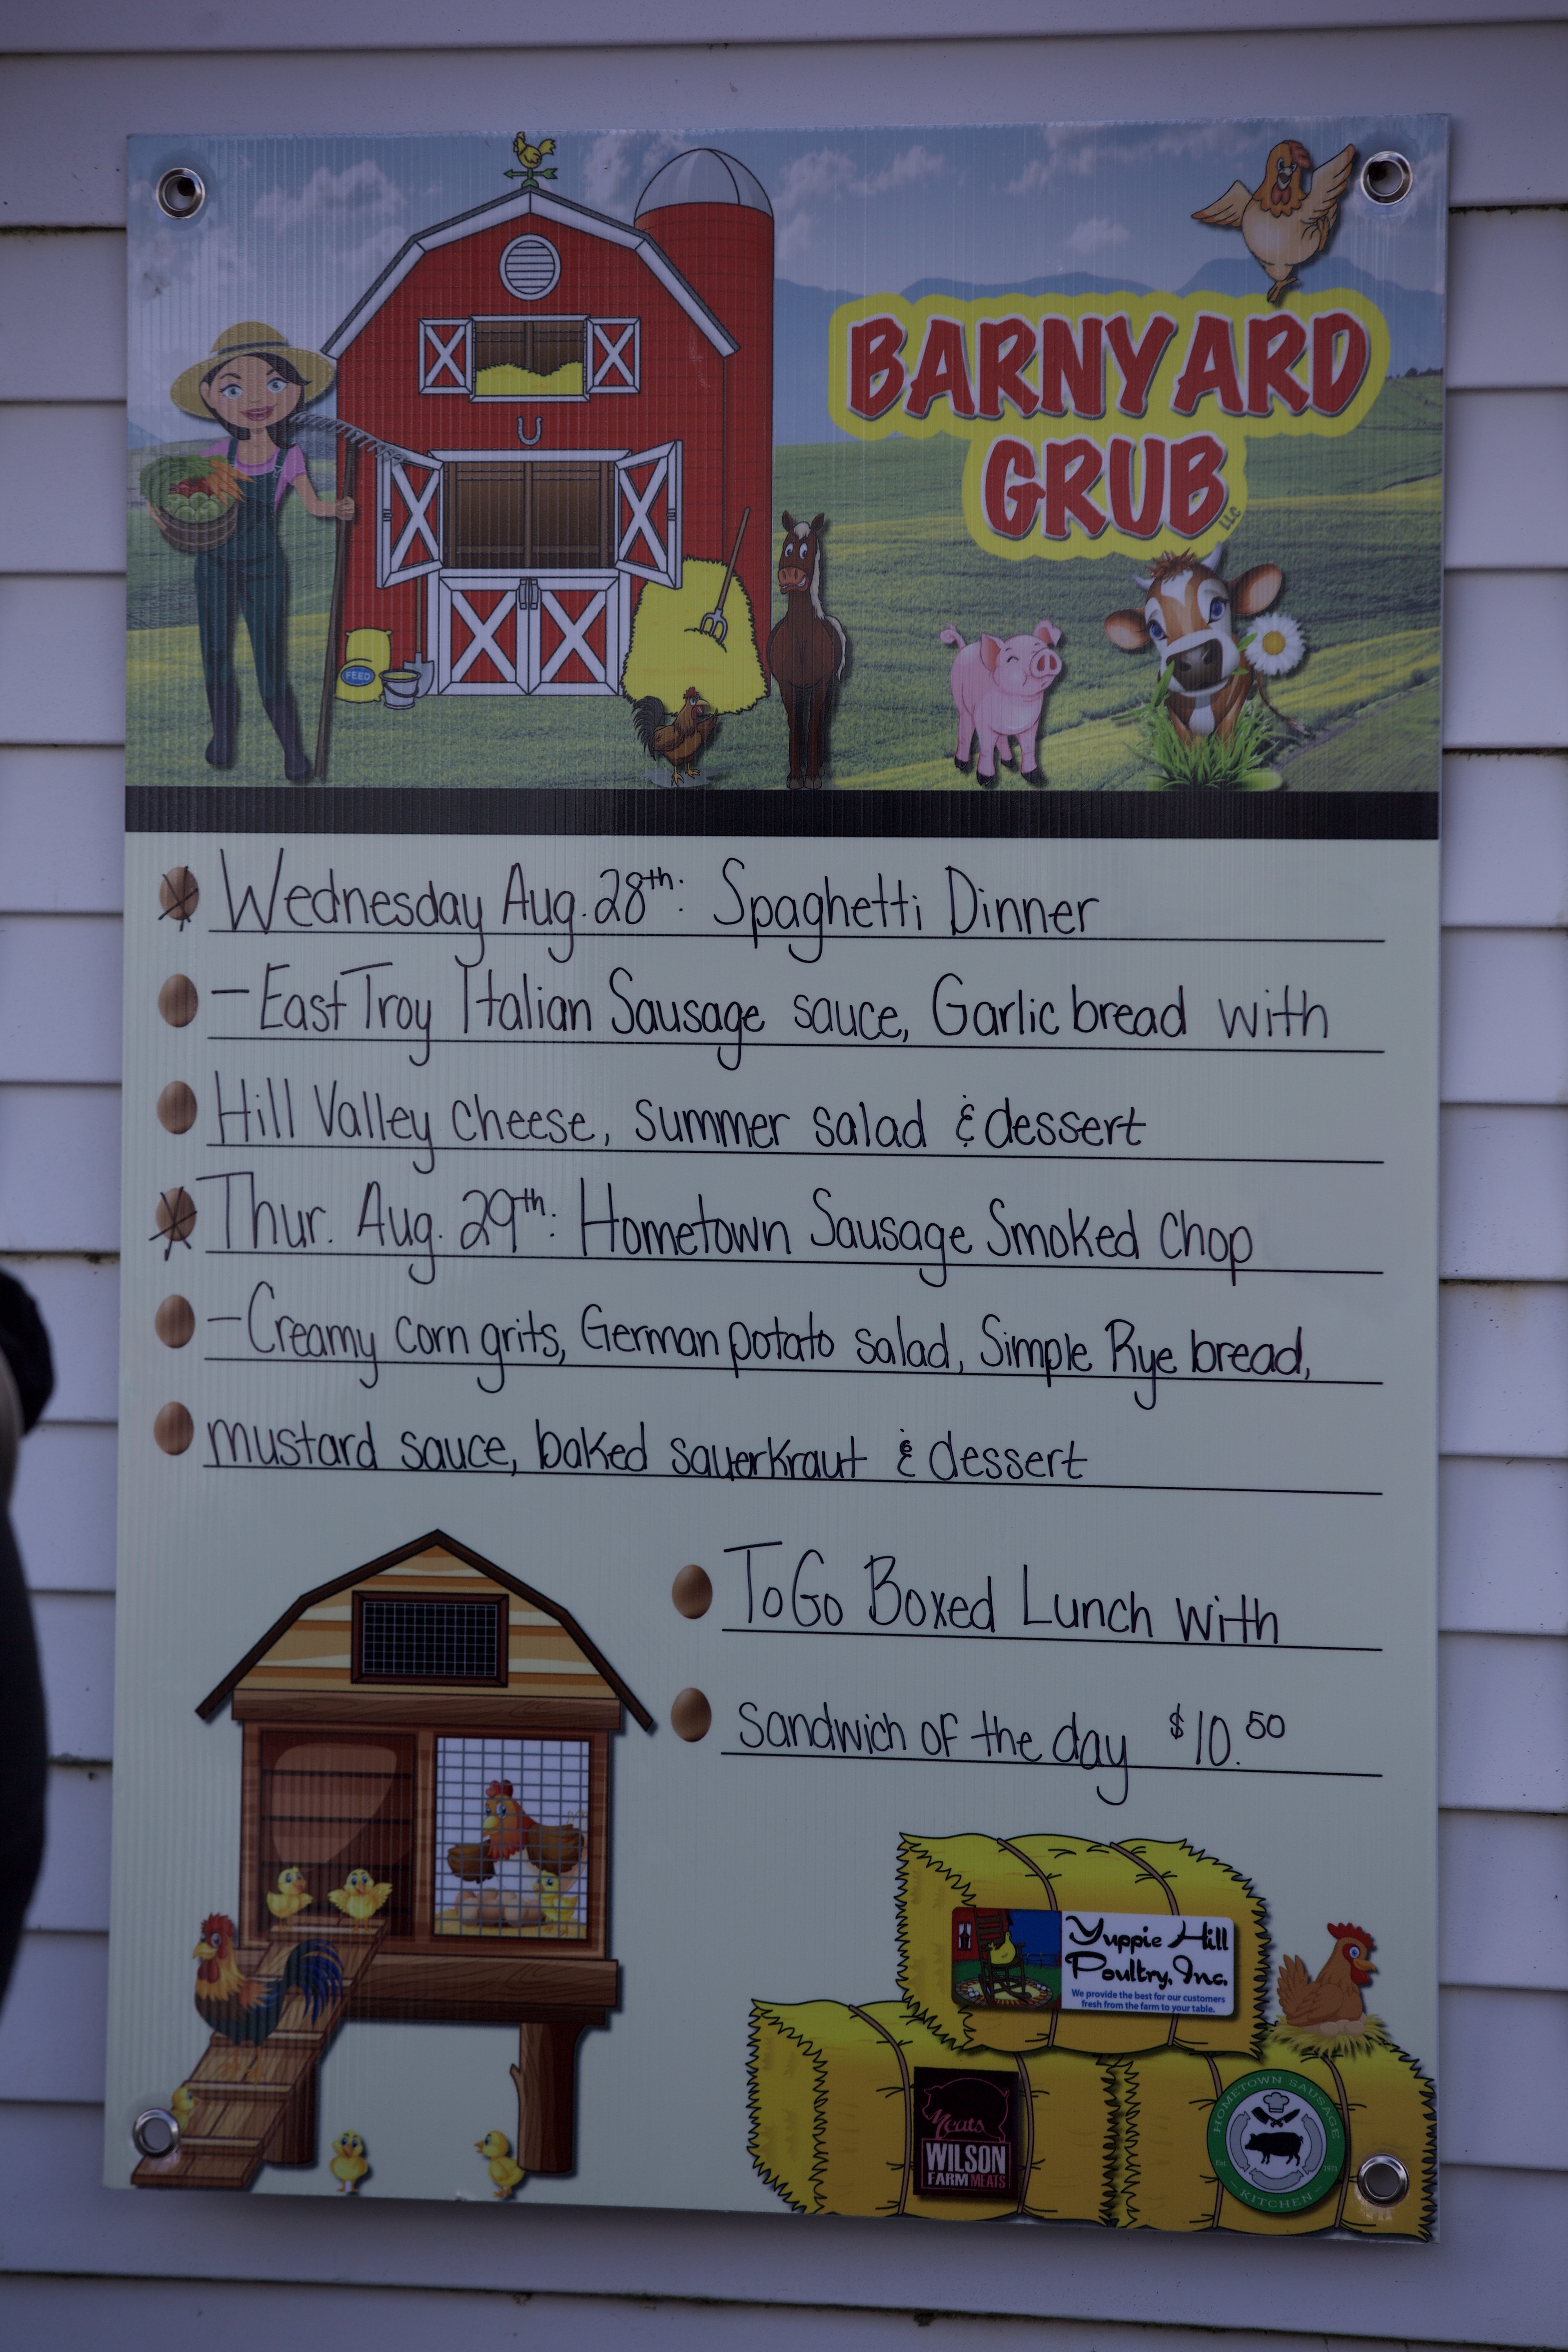 BARNYARD
GRUB
LLC
FEED
Wednesday Aug. 28th: Spaghetti Dinner
- East Troy Italian Sausage sauce, Garlic bread with
Hill Valley cheese, summer salad & dessert
Thur. Aug. 29th: Hometown Sausage Smoked Chop
- Creamy corn grits, German potato salad, Simple Rye bread,
mustard sauce, baked sauerkraut & dessert
ToGo Boxed Lunch with
sandwich of the day $10.50
Yuppie Hill
Poultry, Inc.
We provide the best for our customers
fresh from the farm to your table.
Meats
WILSON
FARM MEATS
HOMETOWN SAUSAGE
Est. 1971
KITCHEN